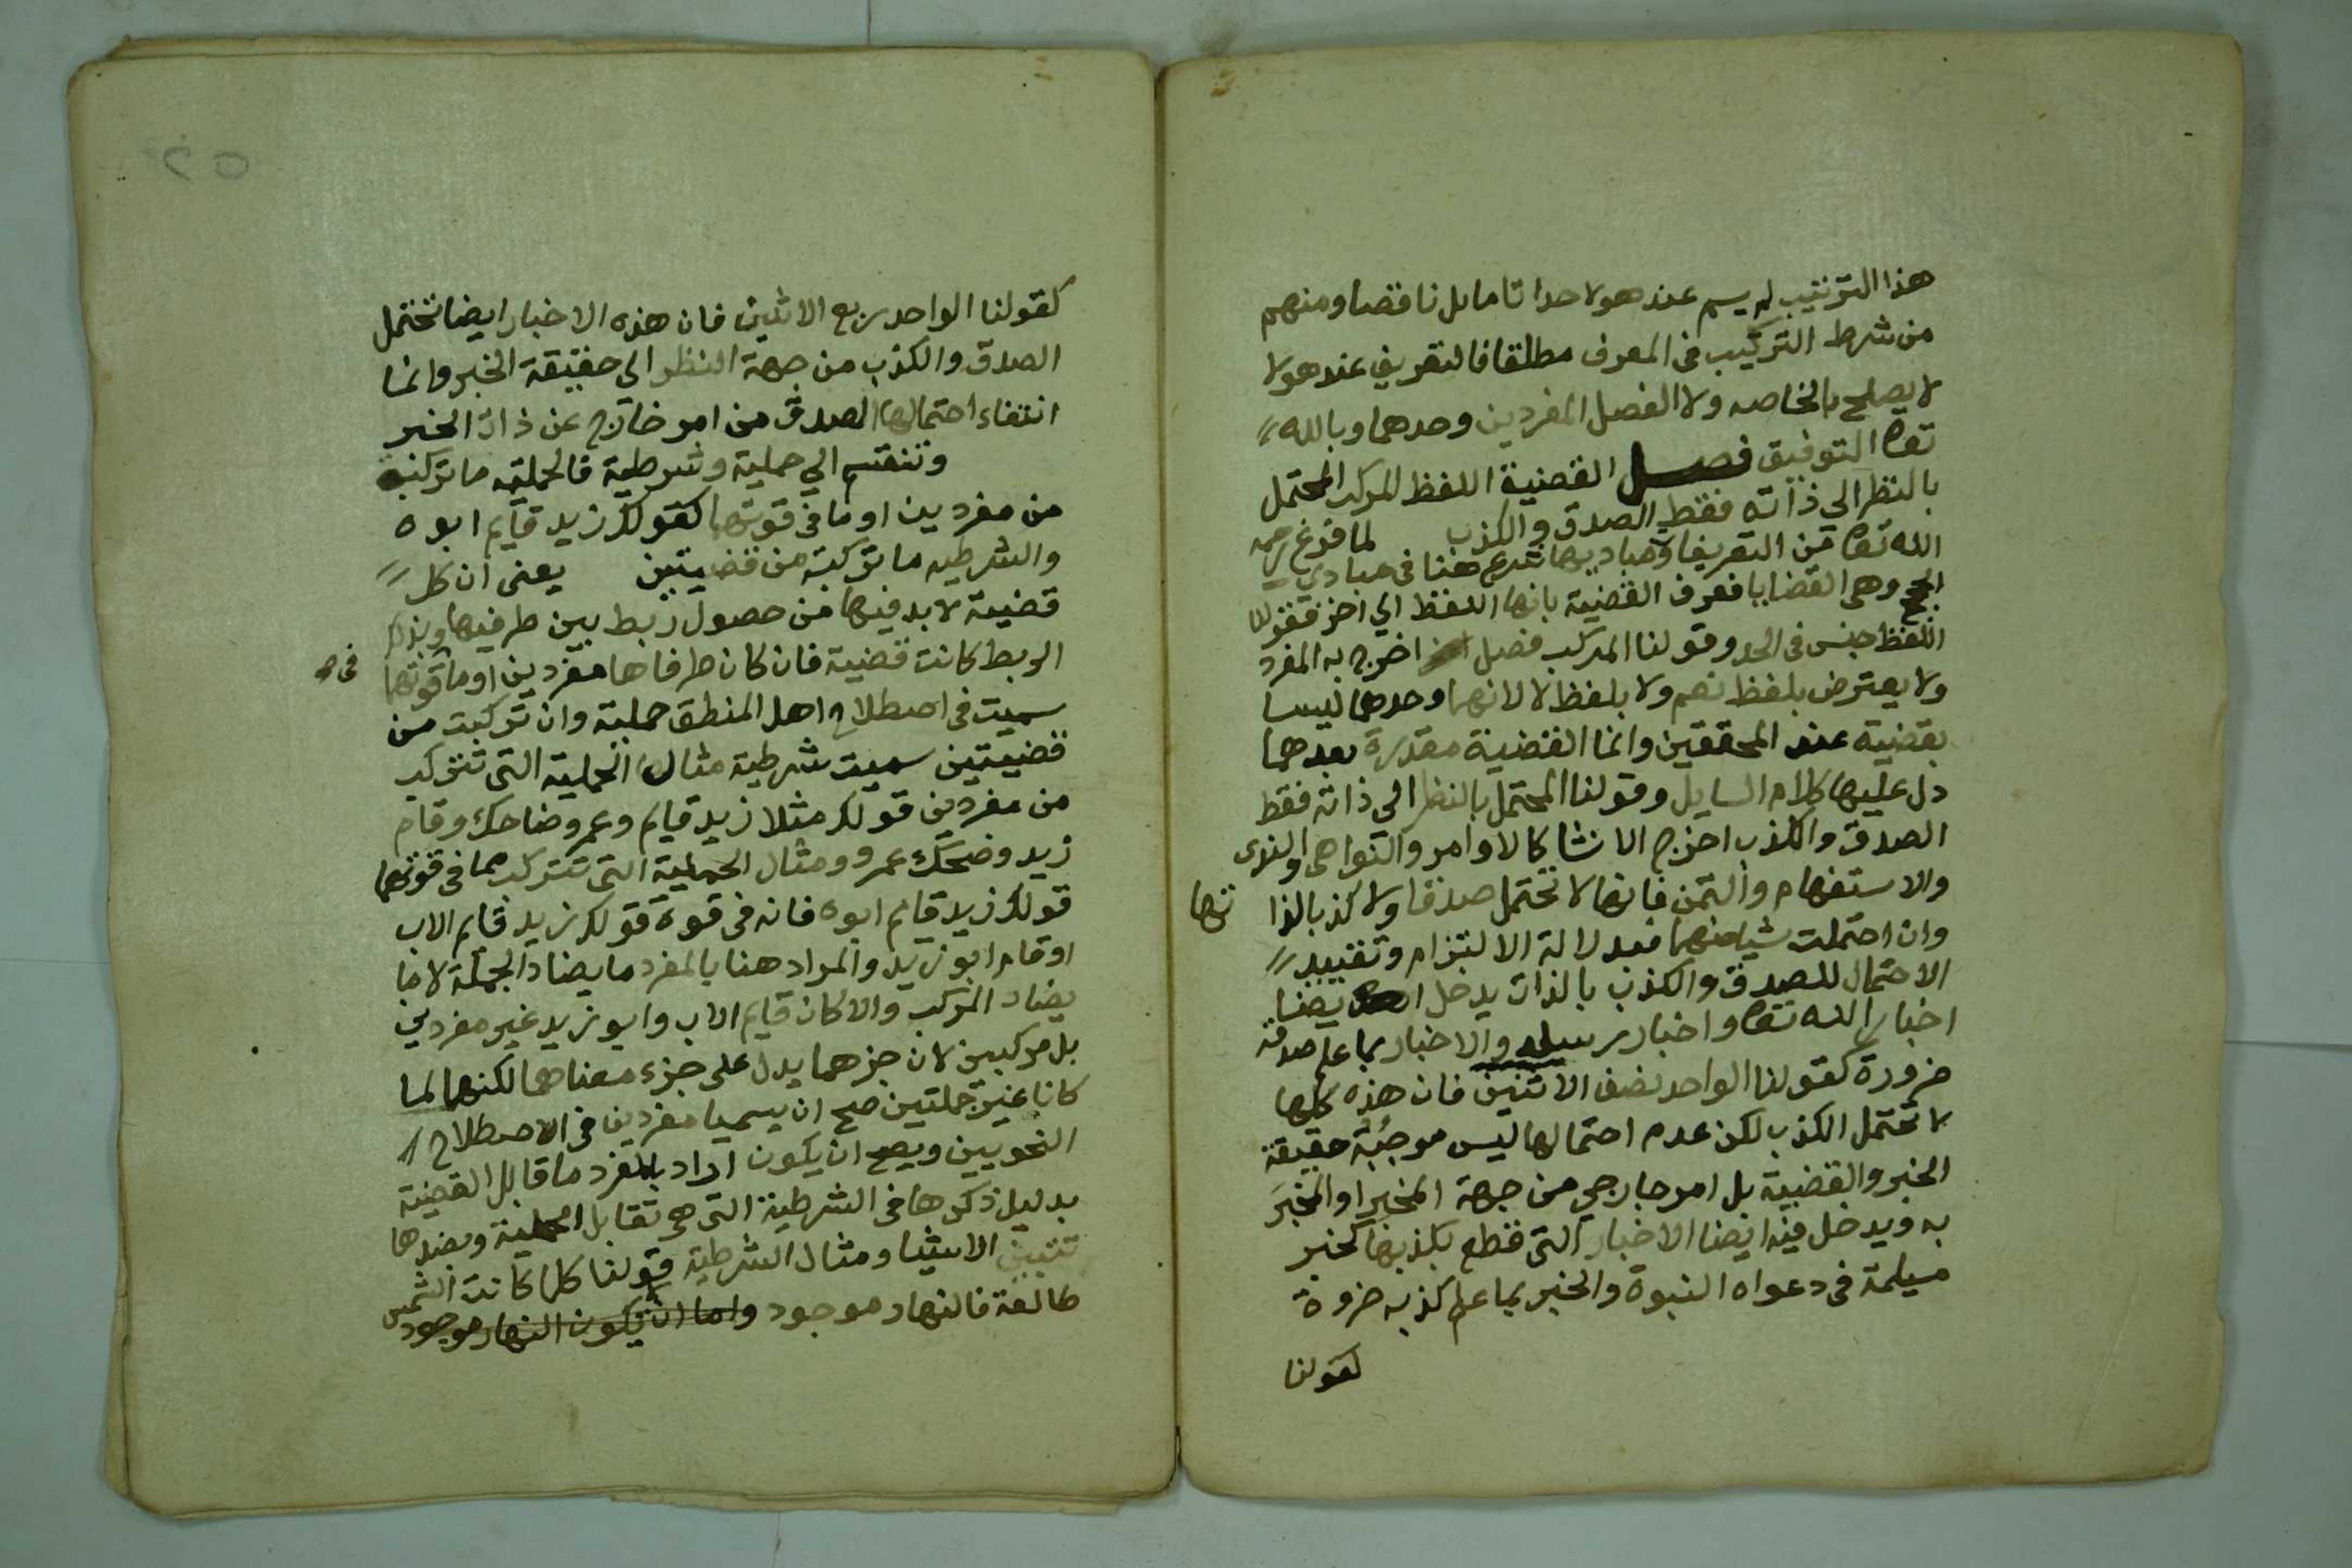 هذا الترتيب لم يسم عند هولا حدا تاما بل ناقصا ومنهم
من شرط التركيب في المعرف مطلقا فالتعريف عند هولا
لا يصلح بالخاصه ولا الفصل المفردين وحدهما وبالله
تعالى التوفيق فصل القضية اللفظ المركب المحتمل
بالنظر الى ذاته فقط الصدق والكذب لما فرغ رحمه
الله تعالى من التعريفا ومباديها شرع هنا في مبادي
الحجج وهي القضايا فعرف القضية بانها اللفظ الي اخر فقولنا
اللفظ جنس في الحد وقولنا المركب فصل اخرج به المفرد
ولا يعترض بلفظ نعم ولا بلفظ لا لانهما وحدهما ليسا
بقضية عند المحققين وانما القضية مقدرة بعدهما
دل عليها كلام السايل وقولنا المحتمل بالنظر الى ذاته فقط
الصدق والكذب اخرج الانشا كالاوامر والنواهي والندى
والاستفهام والتمن فانها لا تحتمل صدقا ولا كذبا لذا تها
وان احتملت شيا منهما فبدلالة الالتزام وتقييد
الاحتمال للصدق والكذب بالذات يدخل ايضا
اخبار الله تعالى واخبار رسله والاخبار بما علم صدقه
ضرورة كقولنا الواحد نصف الاثنين فان هذه كلها
لا تحتمل الكذب لكن عدم احتمالها ليس موجبة حقيقة
الخبر والقضية بل امر خارجي من جهة المخبر او المخبَر
به ويدخل فيه ايضا الاخبار التي قطع بكذبها كخبر
مسيلمة في دعواه النبوة والخبر بما علم كذبه ضرورة
كقولنا
كقولنا الواحد ربع الاثنين فان هذه الاخبار ايضا تحتمل
الصدق والكذب من جهة النظر الى حقيقة الخبر وانما
انتفاء احتمالها الصدق من امر خارج عن ذات الخبر
وتنقسم الي حملية وشرطية فالحملية ما تركبت
من مفردين او ما في قوتهما كقولك زيد قايم ابوه
والشرطيه ما تركبت من قضيتين يعني ان كل
قضية لا بد فيها من حصول ربط بين طرفيها وبذلك
الربط كانت قضية فان كان طرفاها مفردين او ما قوتهما
في صح
سميت في اصطلاح اهل المنطق حملية وان تركبت من
قضيتين سميت شرطية مثال الحملية التي تتركب
من مفردين قولك مثلا زيد قايم وعمرو ضاحك وقام
زيد وضحك عمرو ومثال الحملية التي تتركب مما في قوتهما
قولك زيد قايم ابوه فانه في قوة قولك زيد قايم الاب
او قام ابو زيد والمراد هنا بالمفرد ما يضاد الجملة لا ما
يضاد المركب والا كان قايم الاب وابو زيد غير مفردين
بل مركبين لان جزهما يدل على جزء معناهما لكنهما لما
كانا غير جملتين صح ان يسميا مفردين في الاصطلاح
النحويين ويصح ان يكون اراد بالمفرد ما قابل القضية
بدليل ذكرها في الشرطية التي هي تقابل الحملية وبضدها
تتبين الاشيا ومثال الشرطية قولنا كلما كانت الشمس
طالعة فالنهار موجود واما ان يكون النهار موجود